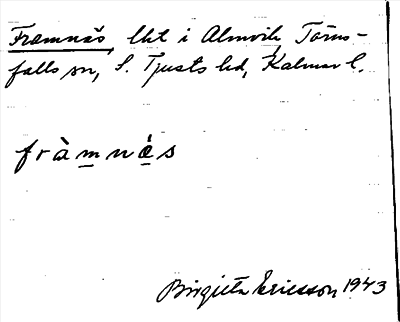 Framnäs, lht i Almvik, Törns-
falls sn, S. Tjusts hd, Kalmar l.
fràmnǽs
Birgitta Ericsson 1943